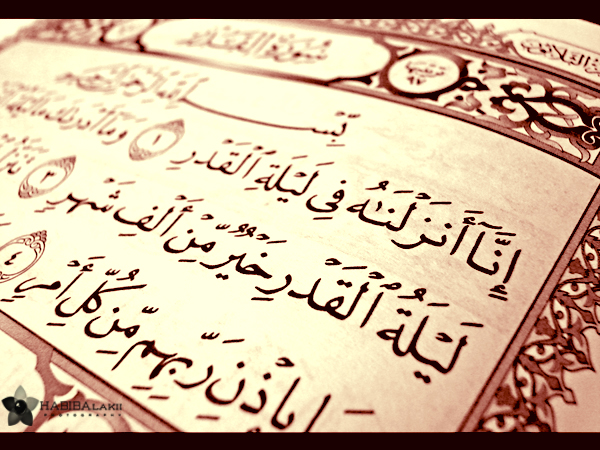 سُورَةُ القَدْرِ
بِسْمِ اللَّهِ الرَّحْمَٰنِ الرَّحِيمِ
إِنَّآ أَنزَلْنَٰهُ فِى لَيْلَةِ ٱلْقَدْرِ ١ وَمَآ أَدْرَىٰكَ مَا لَيْلَةُ
لَيْلَةُ ٱلْقَدْرِ خَيْرٌ مِّنْ أَلْفِ شَهْرٍ ٣ تَنَزَّلُ
بِإِذْنِ رَبِّهِم مِّن كُلِّ أَمْرٍ ٤
HABIBALAKII
PHOTOGRAPHY